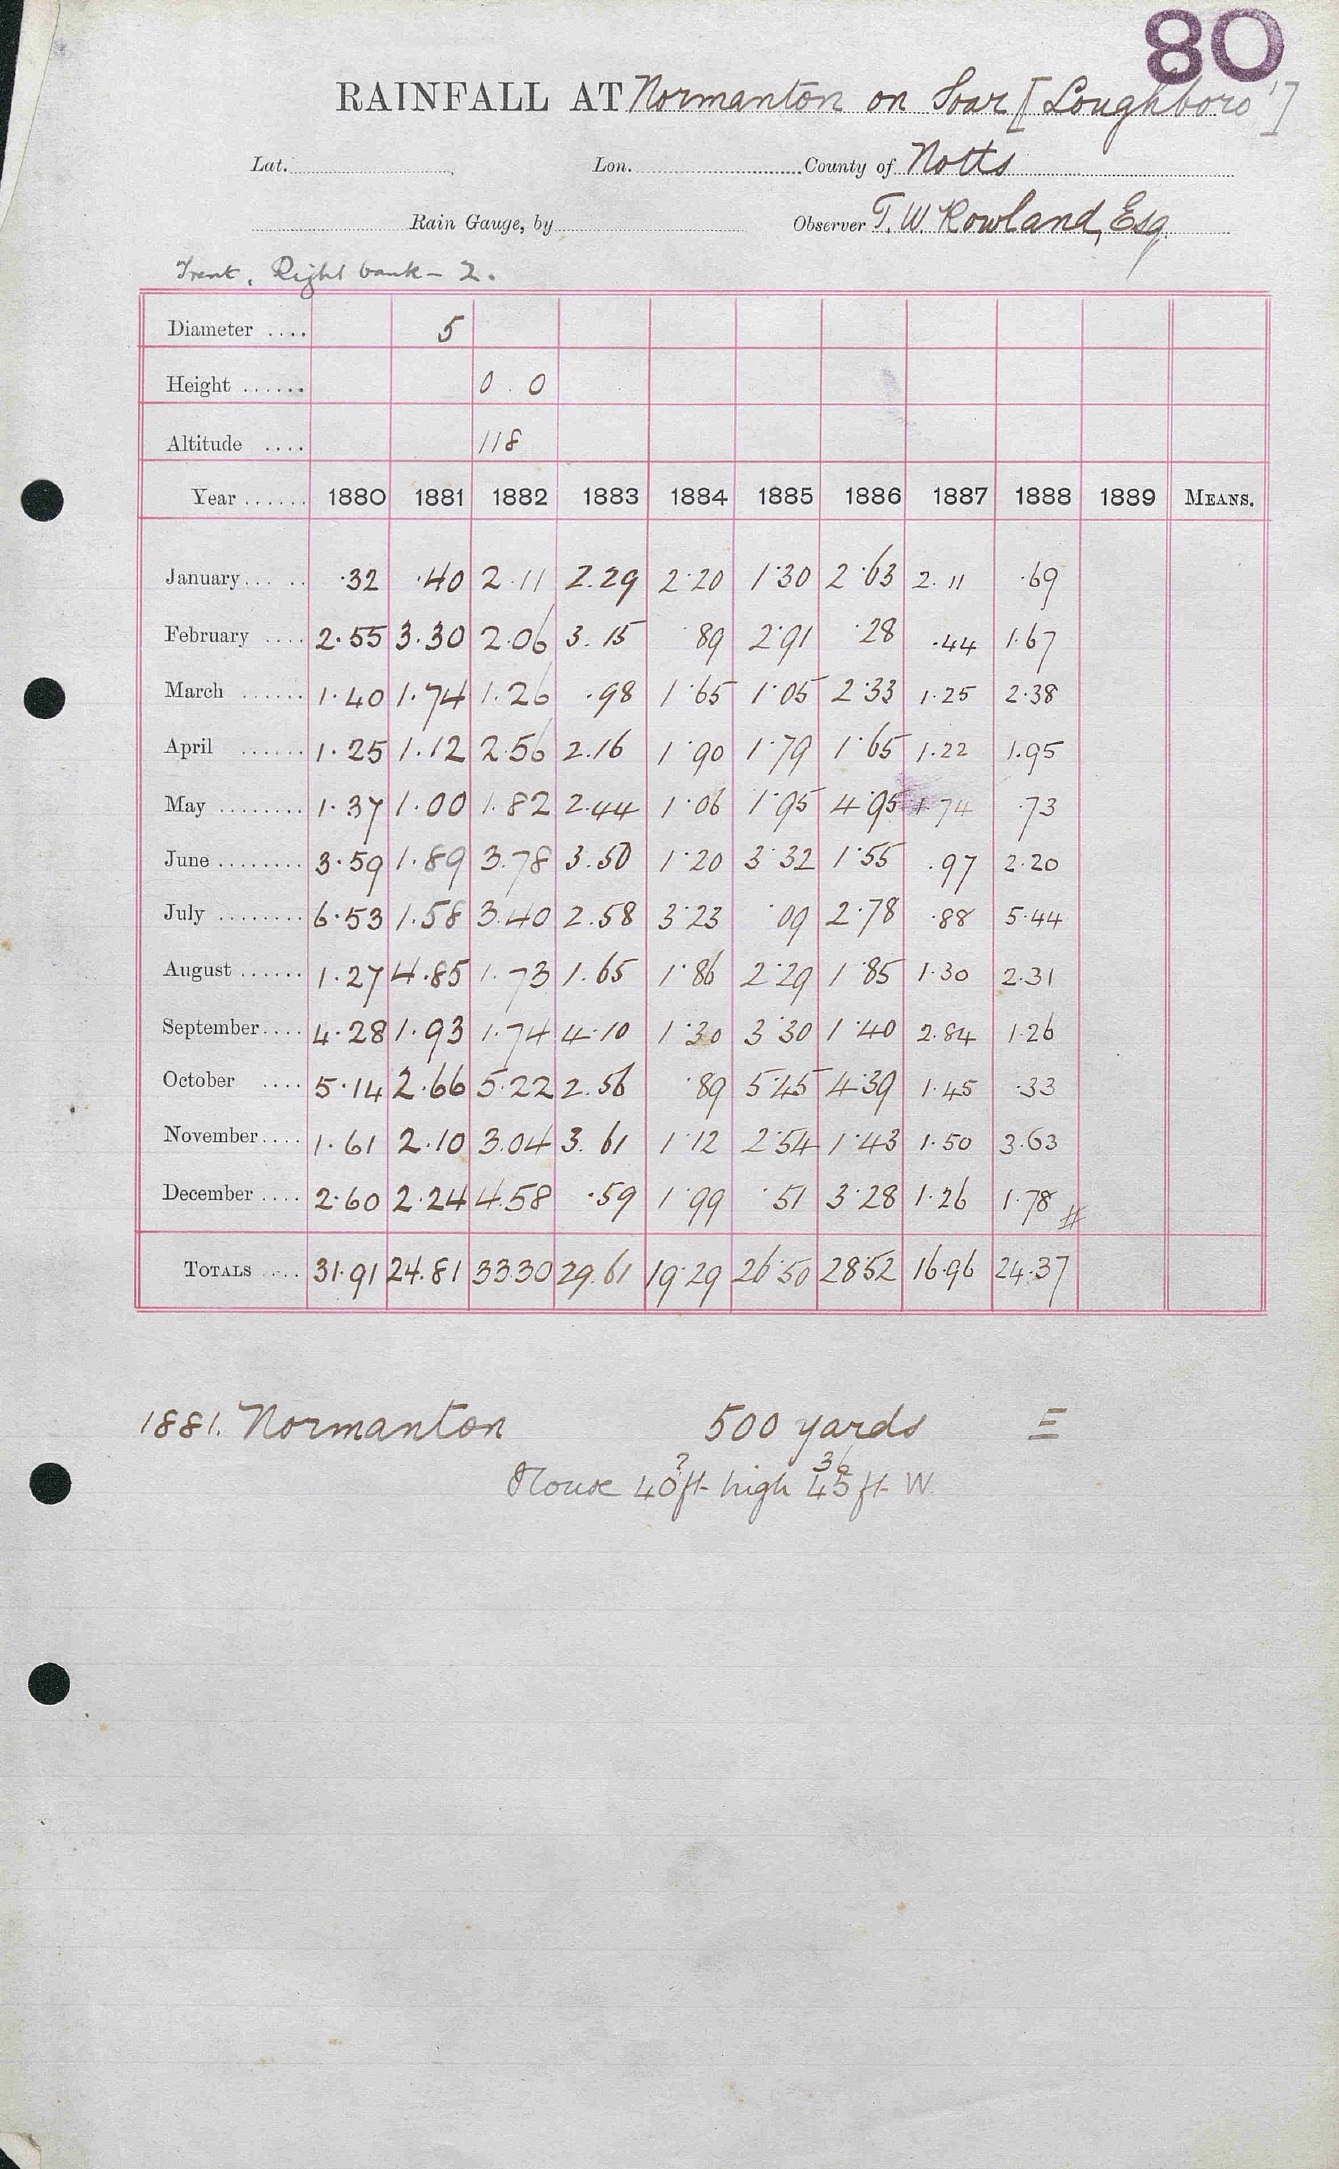 80
RAINFALL AT Normanton on Soar [Loughboro']
Lat. Lon. County of Notts
Rain Gauge, by Observer T. W. Rowland, Esq.
Trent, Right bank - 2.
Diameter .... 5
Height ...... 0 . 0
Altitude .... 118
Year ...... 1880 1881 1882 1883 1884 1885 1886 1887 1888 1889 MEANS.
January ... .. ·32 ·40 2.11 2.29 2·20 1·30 2·63 2.11 ·69
February .... 2.55 3.30 2.06 3.15 ·89 2·91 ·28 .44 1.67
March ...... 1.40 1.74 1.26 .98 1·65 1·05 2·33 1.25 2.38
April ...... 1.25 1.12 2.56 2.16 1·90 1·79 1·65 1.22 1.95
May ........ 1.37 1.00 1.82 2.44 1·06 1·95 4·95 1.74 ·73
June ........ 3.59 1.89 3.78 3.50 1·20 3·32 1·55 .97 2.20
July ........ 6.53 1.58 3.40 2.58 3·23 ·09 2·78 .88 5.44
August ...... 1.27 4.85 1.73 1.65 1·86 2·29 1·85 1.30 2.31
September .... 4.28 1.93 1.74 4.10 1·30 3·30 1·40 2.84 1.26
October .... 5.14 2.66 5.22 2.56 ·89 5·45 4·39 1.45 .33
November .... 1.61 2.10 3.04 3.61 1·12 2·54 1·43 1.50 3.63
December .... 2.60 2.24 4.58 .59 1·99 ·51 3·28 1.26 1.78 #
TOTALS .... 31.91 24.81 33.30 29.61 19·29 26·50 28·52 16.96 24.37
1881. Normanton 500 yards E
? 36
House 40 ft high 45 ft W.